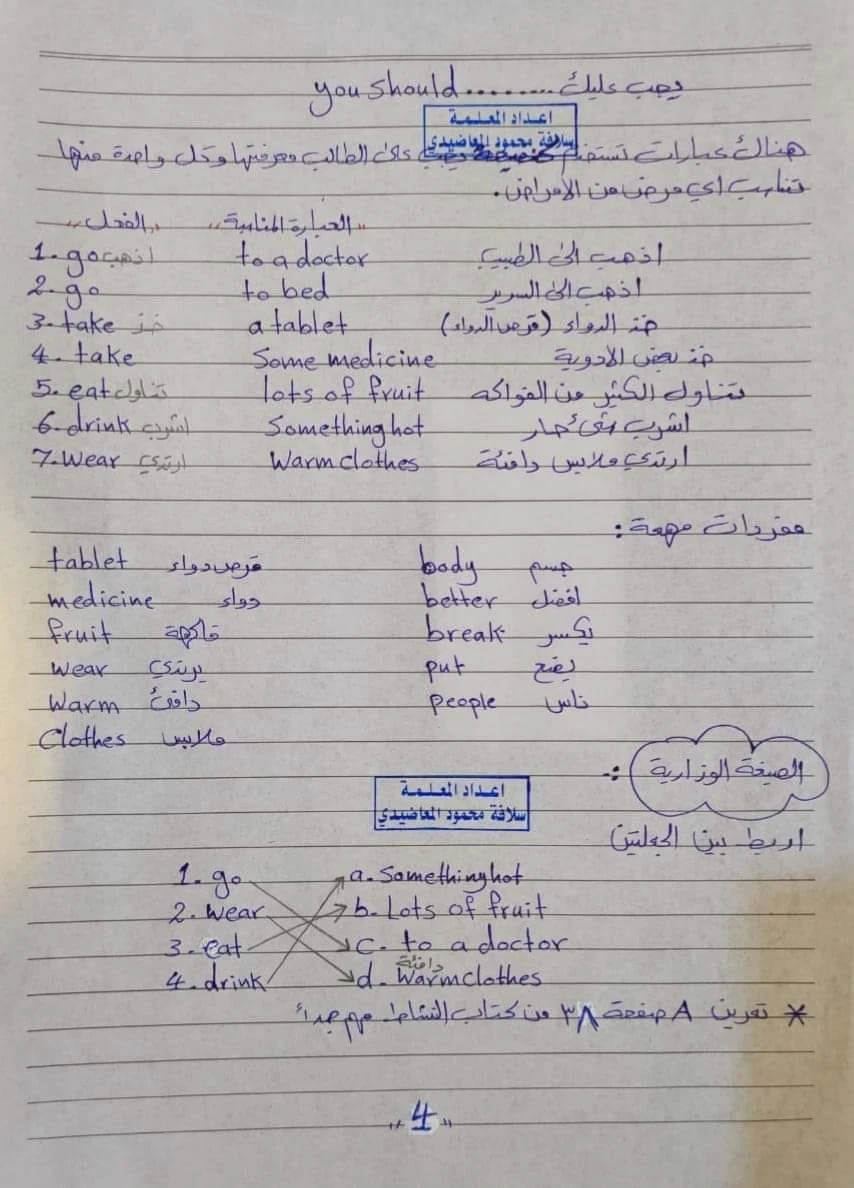 you should......... يجب عليك
اعداد المعلمة
سلافة محمود المعاضيدي
هناك عبارات تستخدم على الطالب معرفتها وكل واحدة منها
تناسب اي مرض من الامراض.
"الفعل" "العبارة المناسبة"
1. go اذهب to a doctor اذهب الى الطبيب
2. go to bed اذهب الى السرير
3. take خذ a tablet خذ الدواء (قرص الدواء)
4. take Some medicine خذ بعض الادوية
5. eat تناول lots of fruit تتناول الكثير من الفواكه
6. drink اشرب Something hot اشرب شئ حار
7. Wear ارتدي Warm clothes ارتدي ملابس دافئة
مفردات مهمة:
tablet قرص دواء body جسم
medicine دواء better افضل
fruit فاكهة break يكسر
wear يرتدي put يضع
Warm دافئ people ناس
Clothes ملابس
الصيغة الوزارية :-
اعداد المعلمة
سلافة محمود المعاضيدي
اربط بين الجملتين
1. go a. Something hot
2. wear b. Lots of fruit
3. eat c. to a doctor
دافئة
4. drink d. Warm clothes
* تمرين A صفحة ٣٨ من كتاب النشاط مهم جداً
"4"